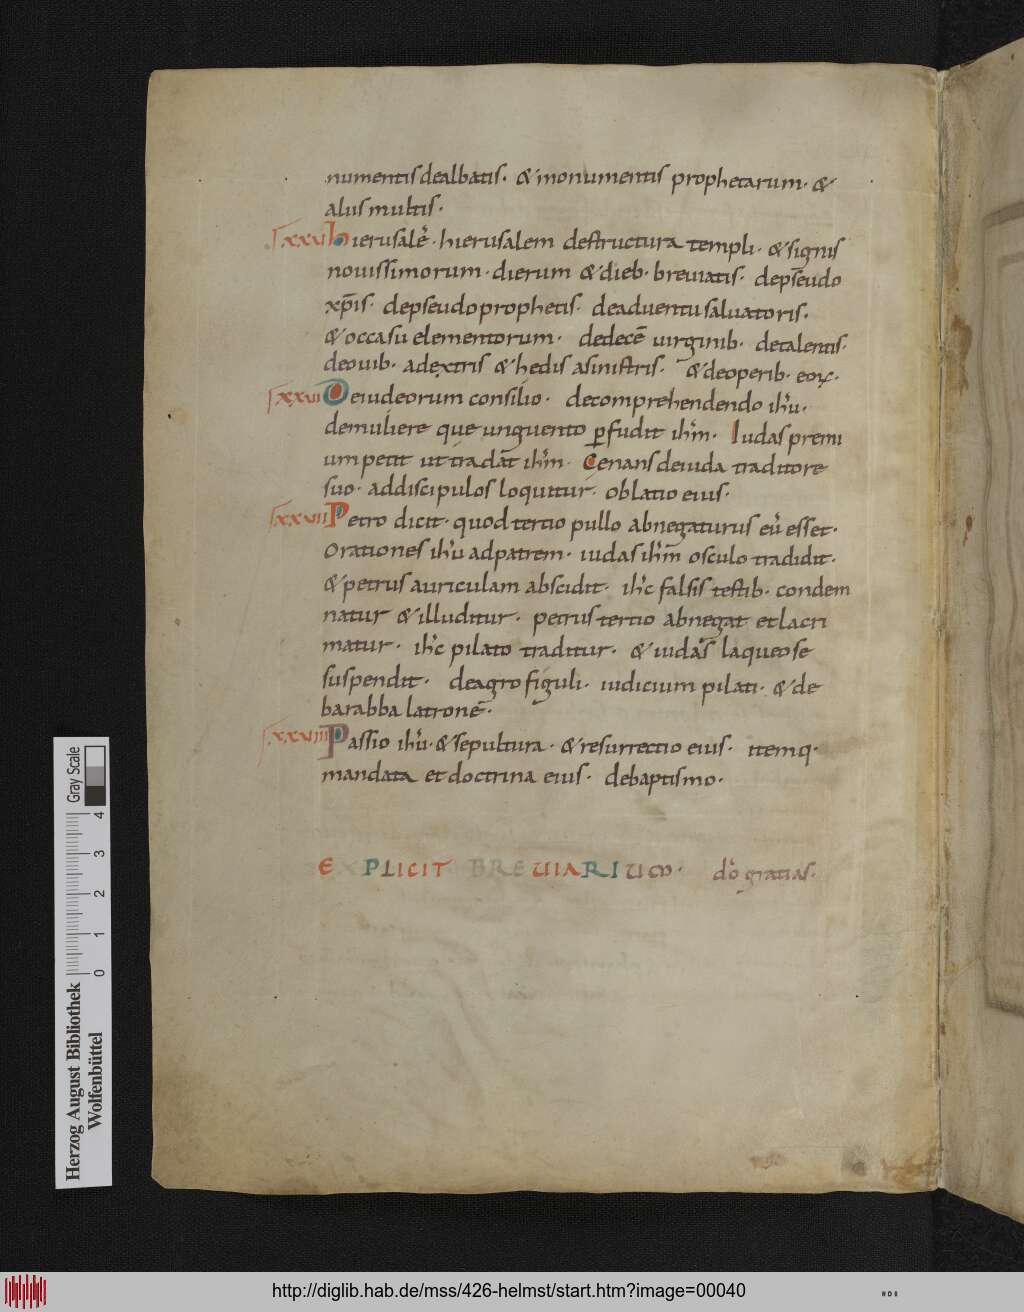 numentis dealbatis· & monumentis prophetarum· &
aliis multis·
XXV hierusalē· hierusalem destructura templi· & signis
nouissimorum· dierum & dieb· breuiatis· depseudo
xp̄is· depseudoprophetis· deaduentu saluatoris·
& occasu elementorum· dedecē uirginib· detalentis·
deouib· adextris & hedis asinistris· & deoperib· eoꝝ·
XXVI De iudeorum consilio· decomprehendendo ihu·
demuliere que unguento ꝑfudit ihm· Iudas premi
um petit ut tradat ihm· Cenans deiuda traditore
suo· addiscipulos loquitur· oblatio eius·
XXVII Petro dicit· quod tertio pullo abnegaturus eū esset·
Orationes ihu adpatrem· iudas ihm osculo tradidit·
& petrus auriculam abscidit· ihc falsis testib· condem
natur & illuditur· petrus tertio abnegat et lacri
matur· ihc pilato traditur· & iudas laqueo se
suspendit· deagro figuli· iudicium pilati· & de
barabba latronē·
XXVIII Passio ihu· & sepultura· & resurrectio eius· itemq·
mandata et doctrina eius· debaptismo·
EXPLICIT BREUIARIUM· dō gratias·
Herzog August Bibliothek
Wolfenbüttel
0 1 2 3 4
Gray Scale
http://diglib.hab.de/mss/426-helmst/start.htm?image=00040